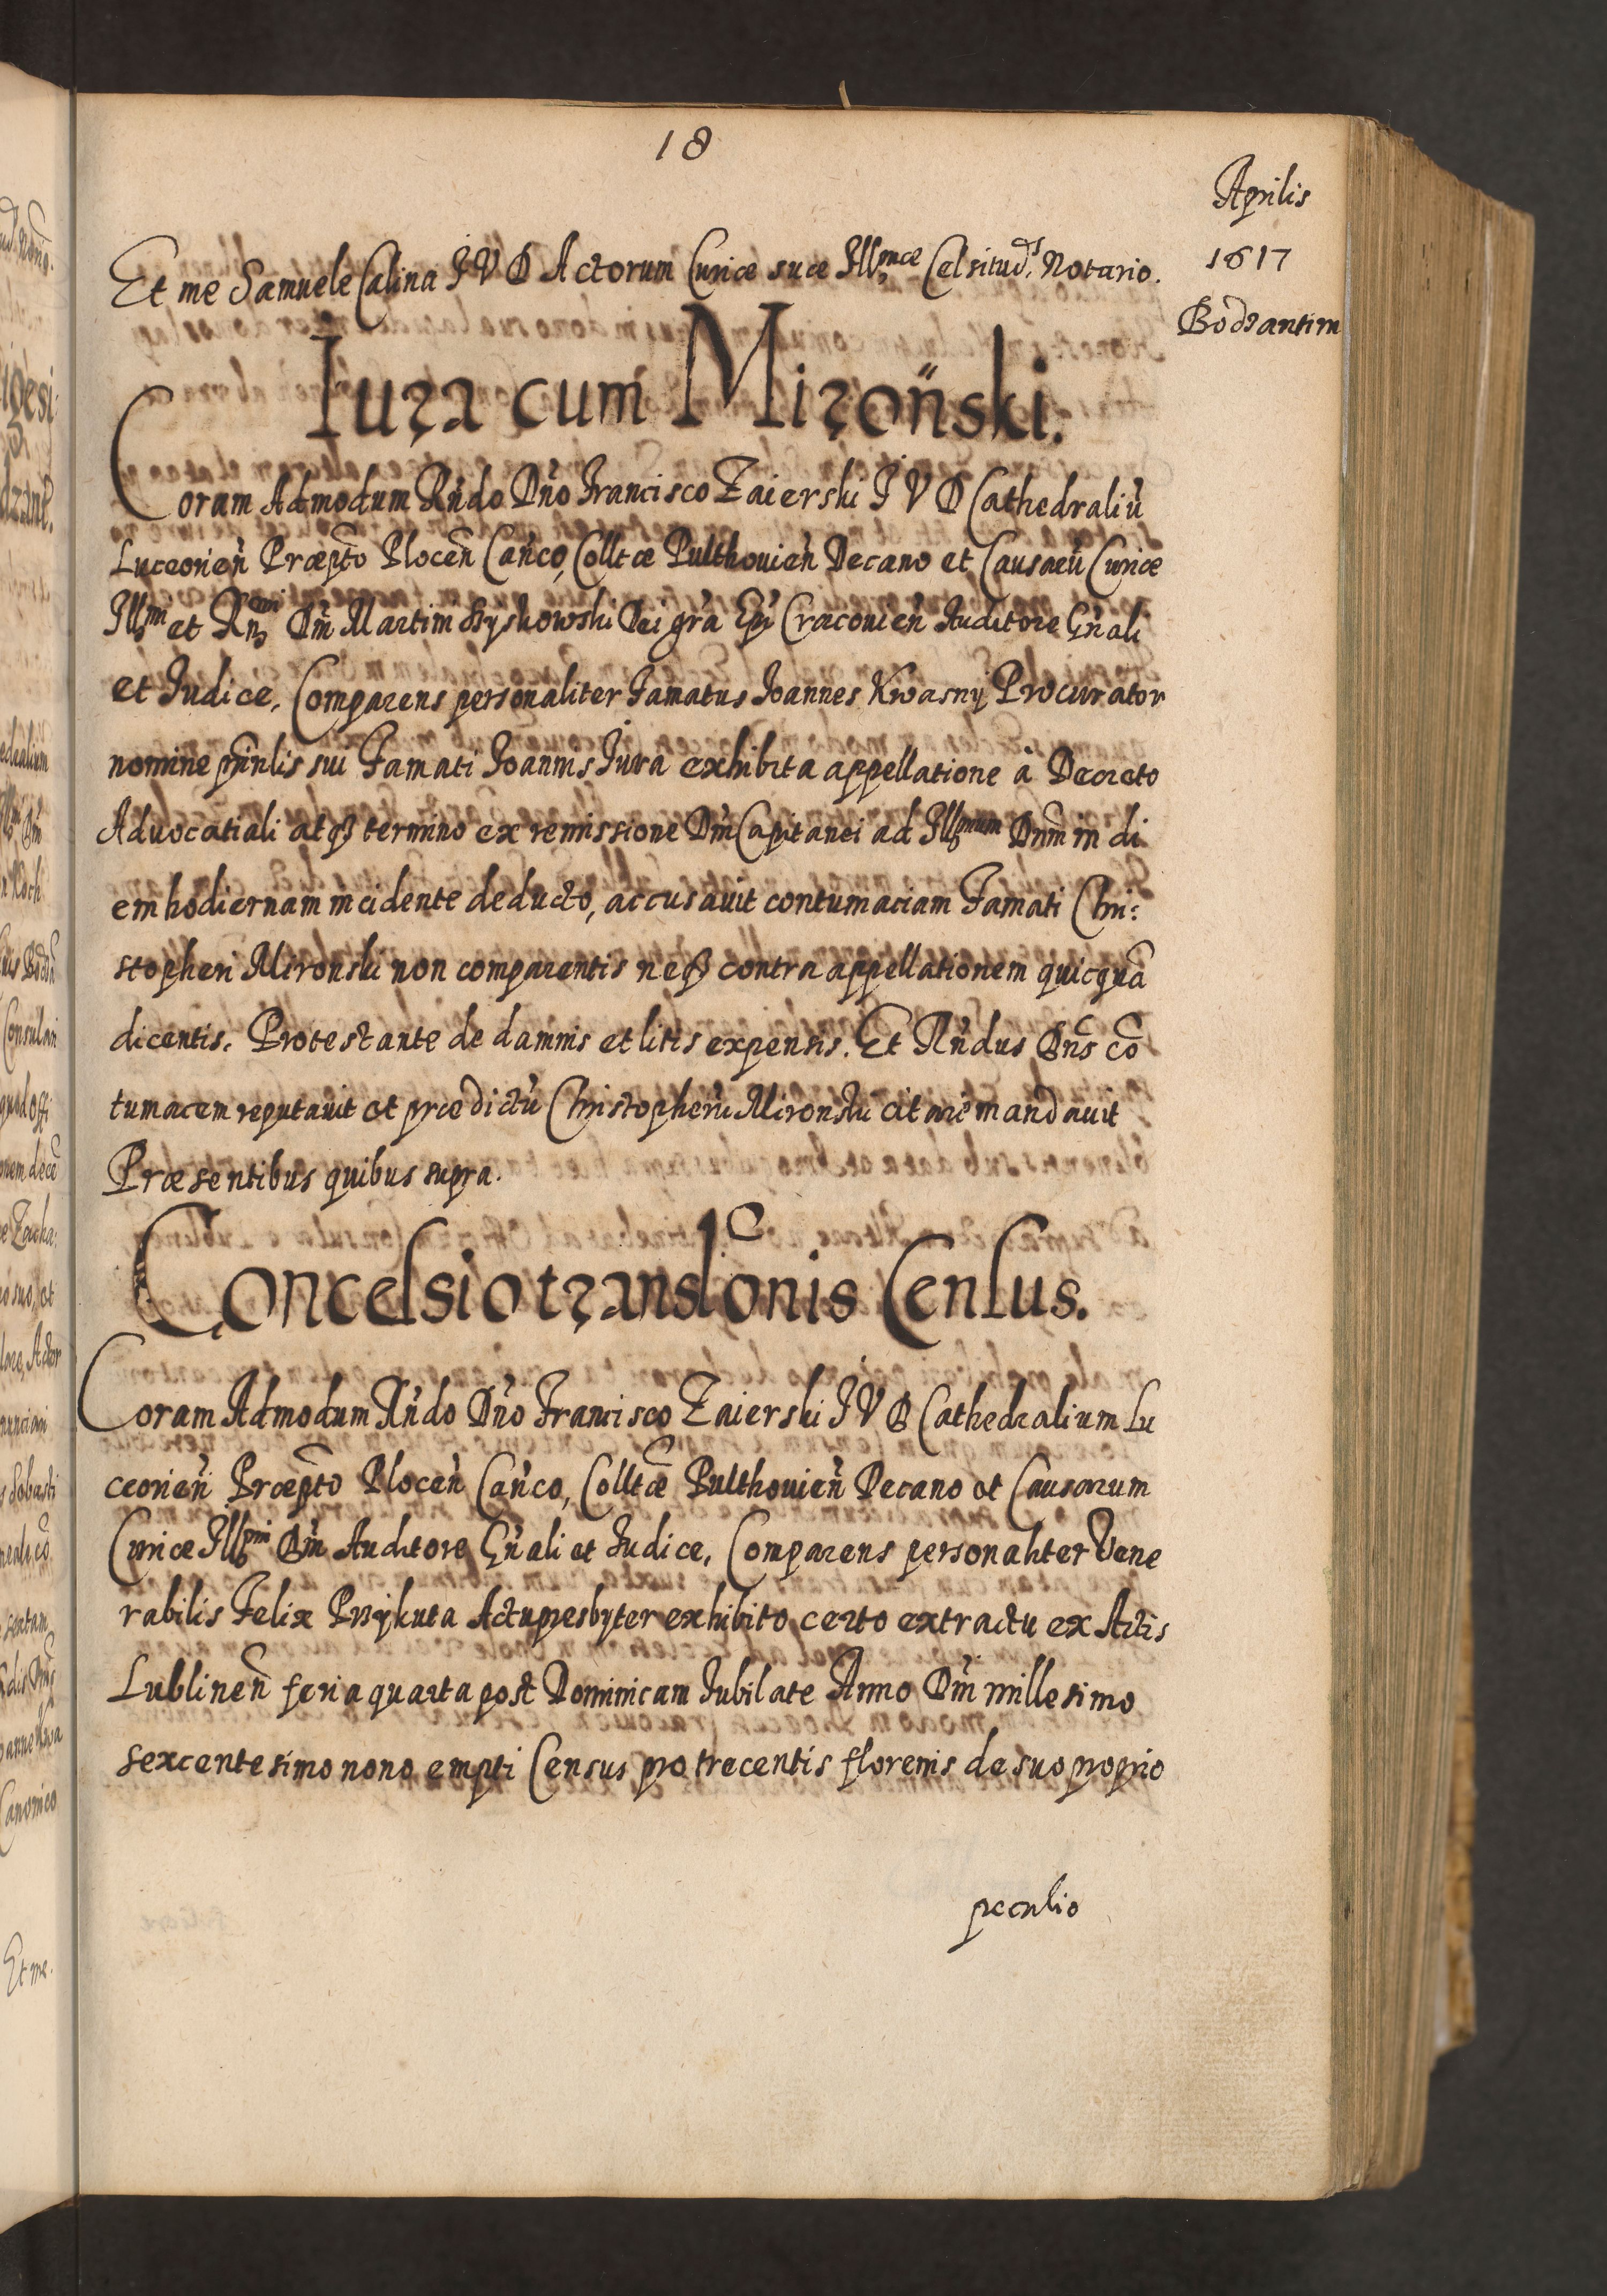 18
Aprilis
1617
Bodzantim
Et me Samuele Calina I V D Actorum Curiæ suæ Illmæ Celsitudis Notario.
Iura cum Miroński.
Coram Admodum Rndo Dno Francisco Zaierski I V D Cathedraliū
Luceorień Præpto Plocen̄ Canco, Colltæ Pulthouien̄ Decano et Causarū Curiæ
Illmi et Rndmi Dni Martini Szyskowski Dei gra Epi Cracouien̄ Auditore Gnali
et Iudice, Comparens personaliter Famatus Ioannes Kwasny Procurator
nomine prinlis sui Famati Ioannis Iura exhibita appellatione à Decreto
Aduocatiali atqȝ termino ex remissione Dni Capitanei ad Illmum Dnm in di
em hodiernam incidente deducto, accusauit contumaciam Famati Chri:
stopheri Mironski non comparentis neqȝ contra appellationem quicquā
dicentis. Protestante de damnis et litis expensis. Et Rndus Dns cō
tumacem reputauit et prædictū Christopherū Mironski citare mandauit
Præsentibus quibus supra.
Concessio transfonis Census.
Coram Admodum Rndo Dno Francisco Zaierski I V D Cathedralium Lu
ceorien̄ Præpto Plocen̄ Canco, Colltæ Pulthouien̄ Decano et Causarum
Curiæ Illmi Dni Auditore Gnali et Iudice, Comparens personaliter Vene
rabilis Felix Przykuta Actupresbyter exhibito certo extractu ex Actis
Lublinen̄ feria quarta post Dominicam Iubilate Anno Dni millesimo
sexcentesimo nono empti Census pro trecentis florenis de suo proprio
peculio